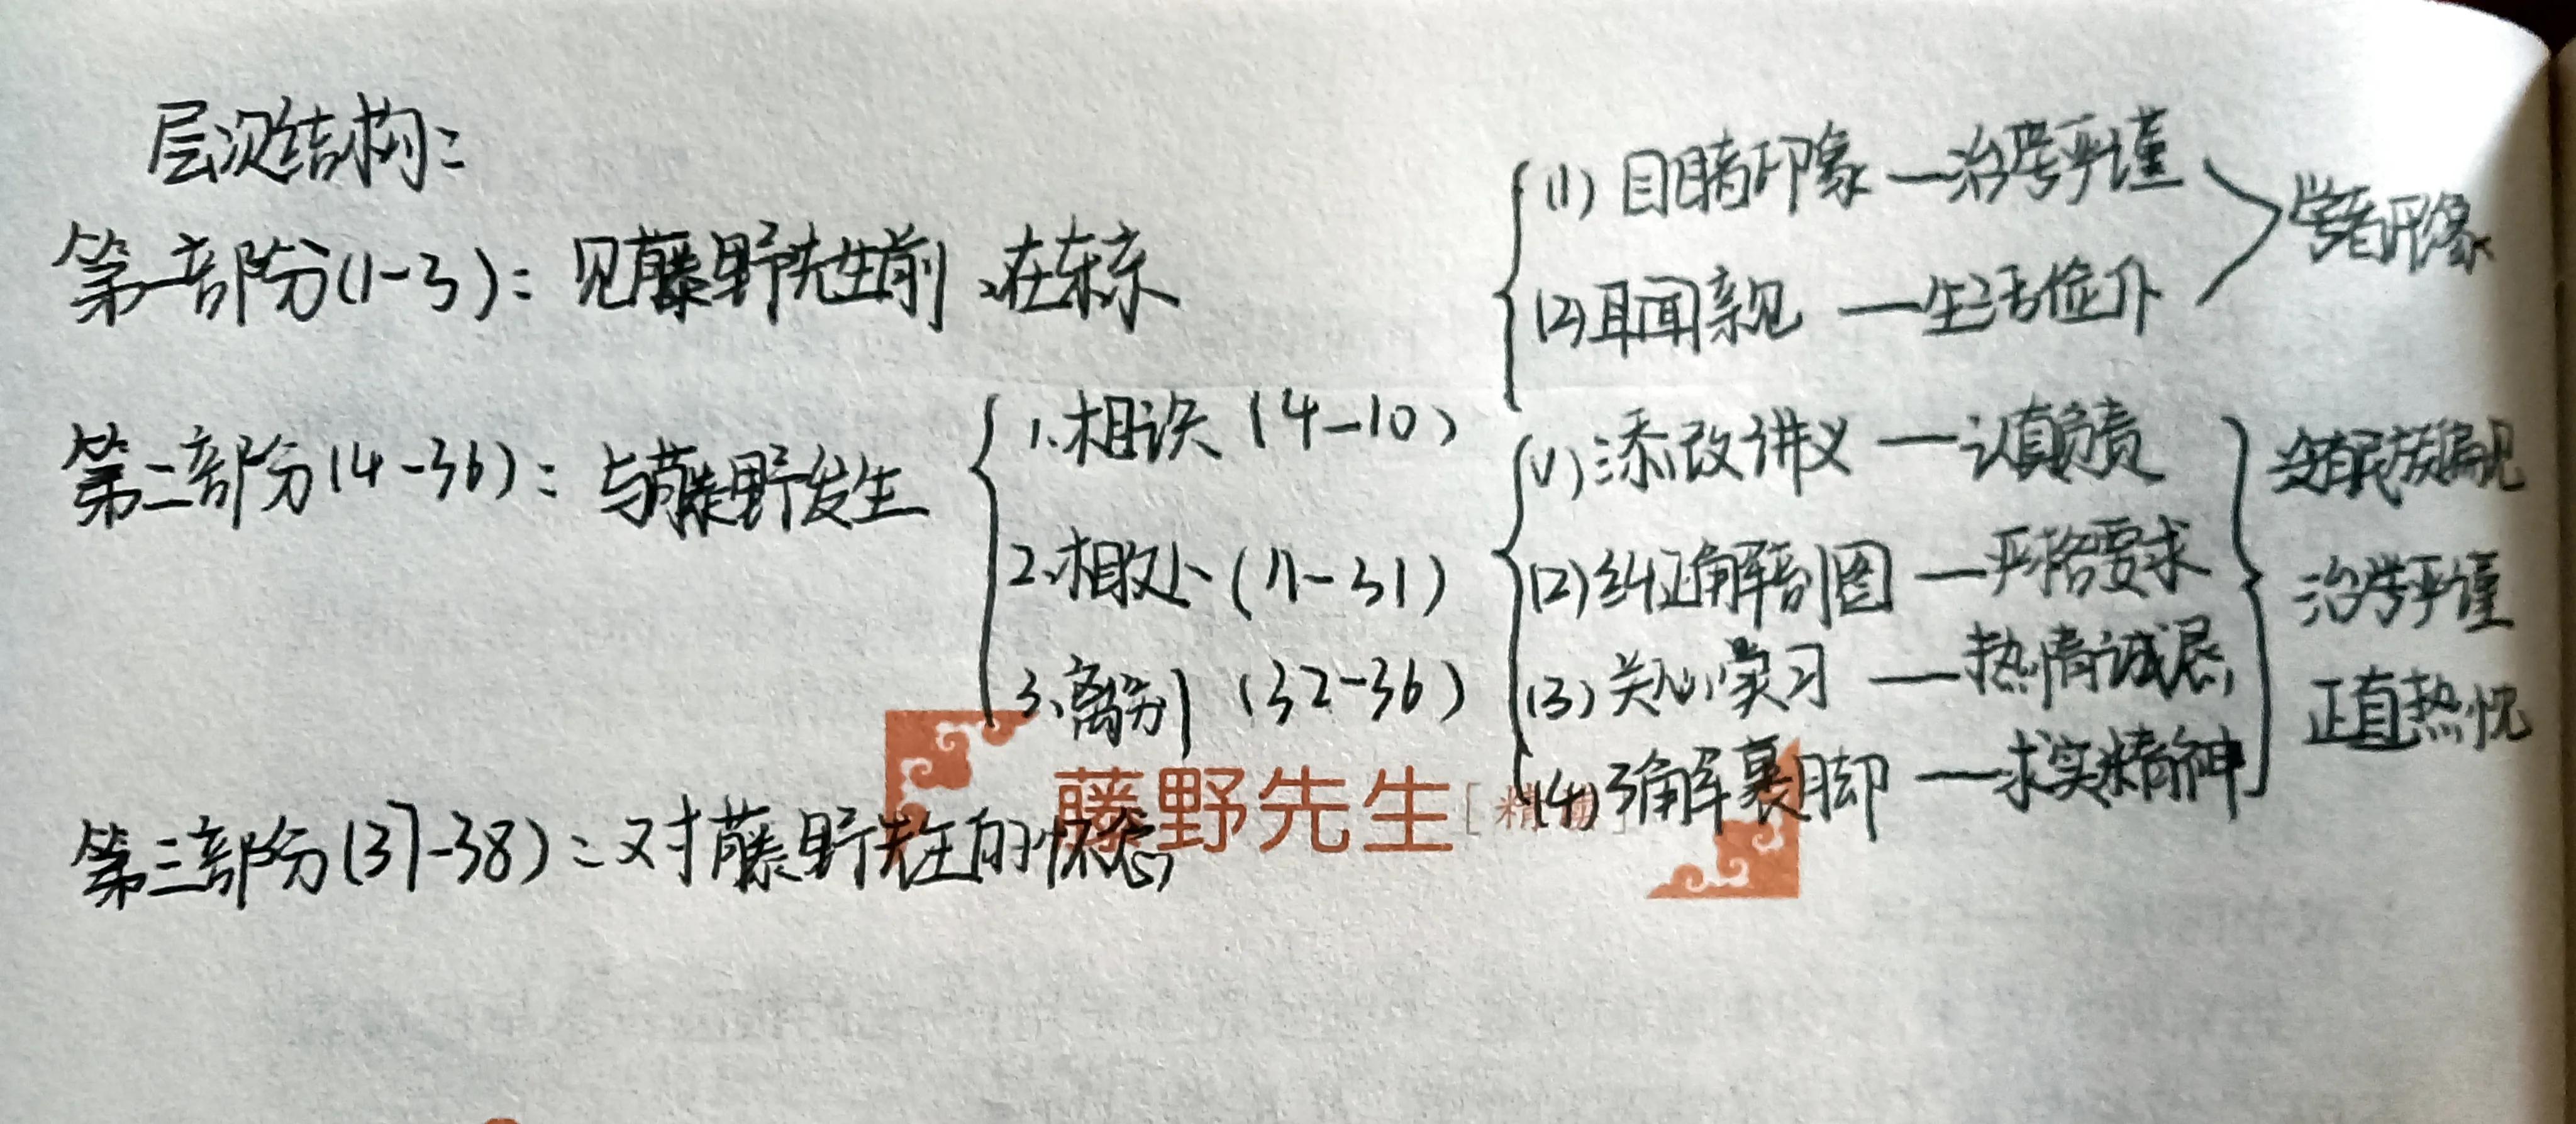 层次结构:
第一部分(1-3): 见藤野先生前、在东京
第二部分(4-36): 与藤野发生
1.相识(4-10)
(1)目睹印象—治学严谨
(2)耳闻亲见—生活俭朴
学者形象
2.相处(11-31)
(1)添改讲义—认真负责
(2)纠正解剖图—严格要求
(3)关心实习—热情诚恳
(4)了解裹脚—求实精神
没有民族偏见
治学严谨
正直热忱
3.离别(32-36)
第三部分(37-38): 对藤野先生的怀念
藤野先生